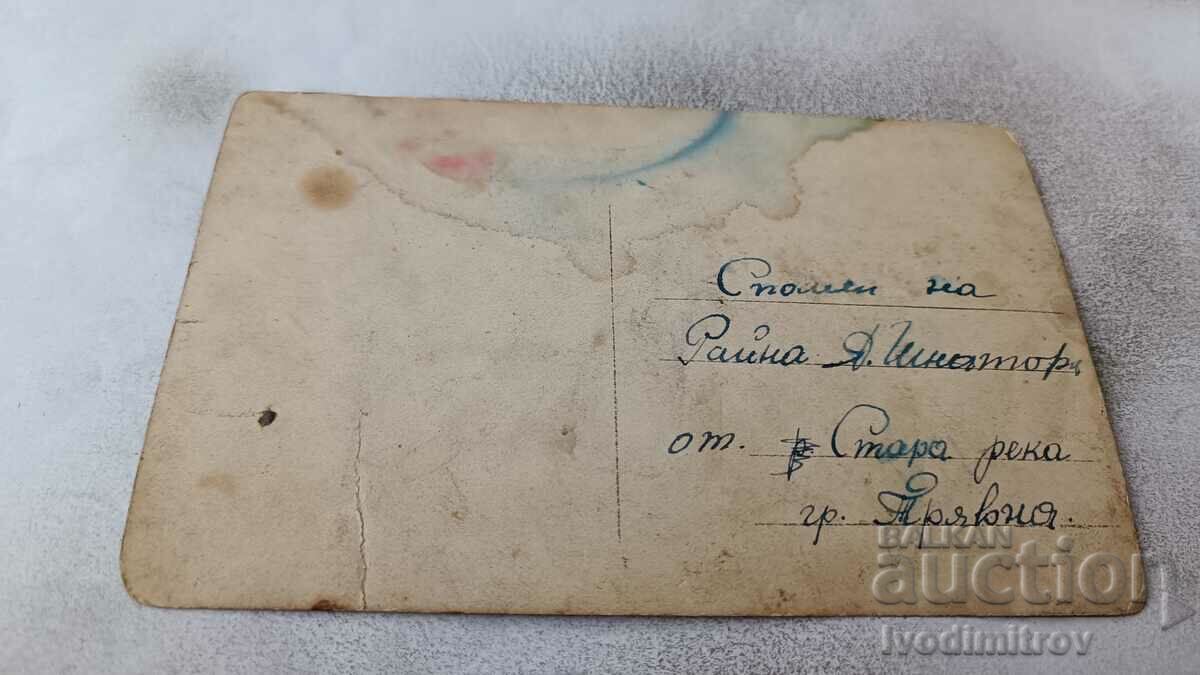 Спомен на
Райна Д.
от. Стара река
гр. Трявна.
BALKAN
auction
Ivodimitrov